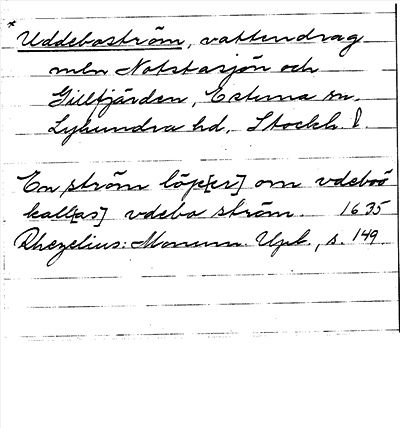 * Uddeboström, vattendrag
mln Notstasjön och
Gilltjärden, Estuna sn.
Lyhundra hd. Stockh. l.
En ström löp[er] om vdeboö
kall[as] vdebo ström. 1635
Rhezelius: Monum. Upl., s. 149